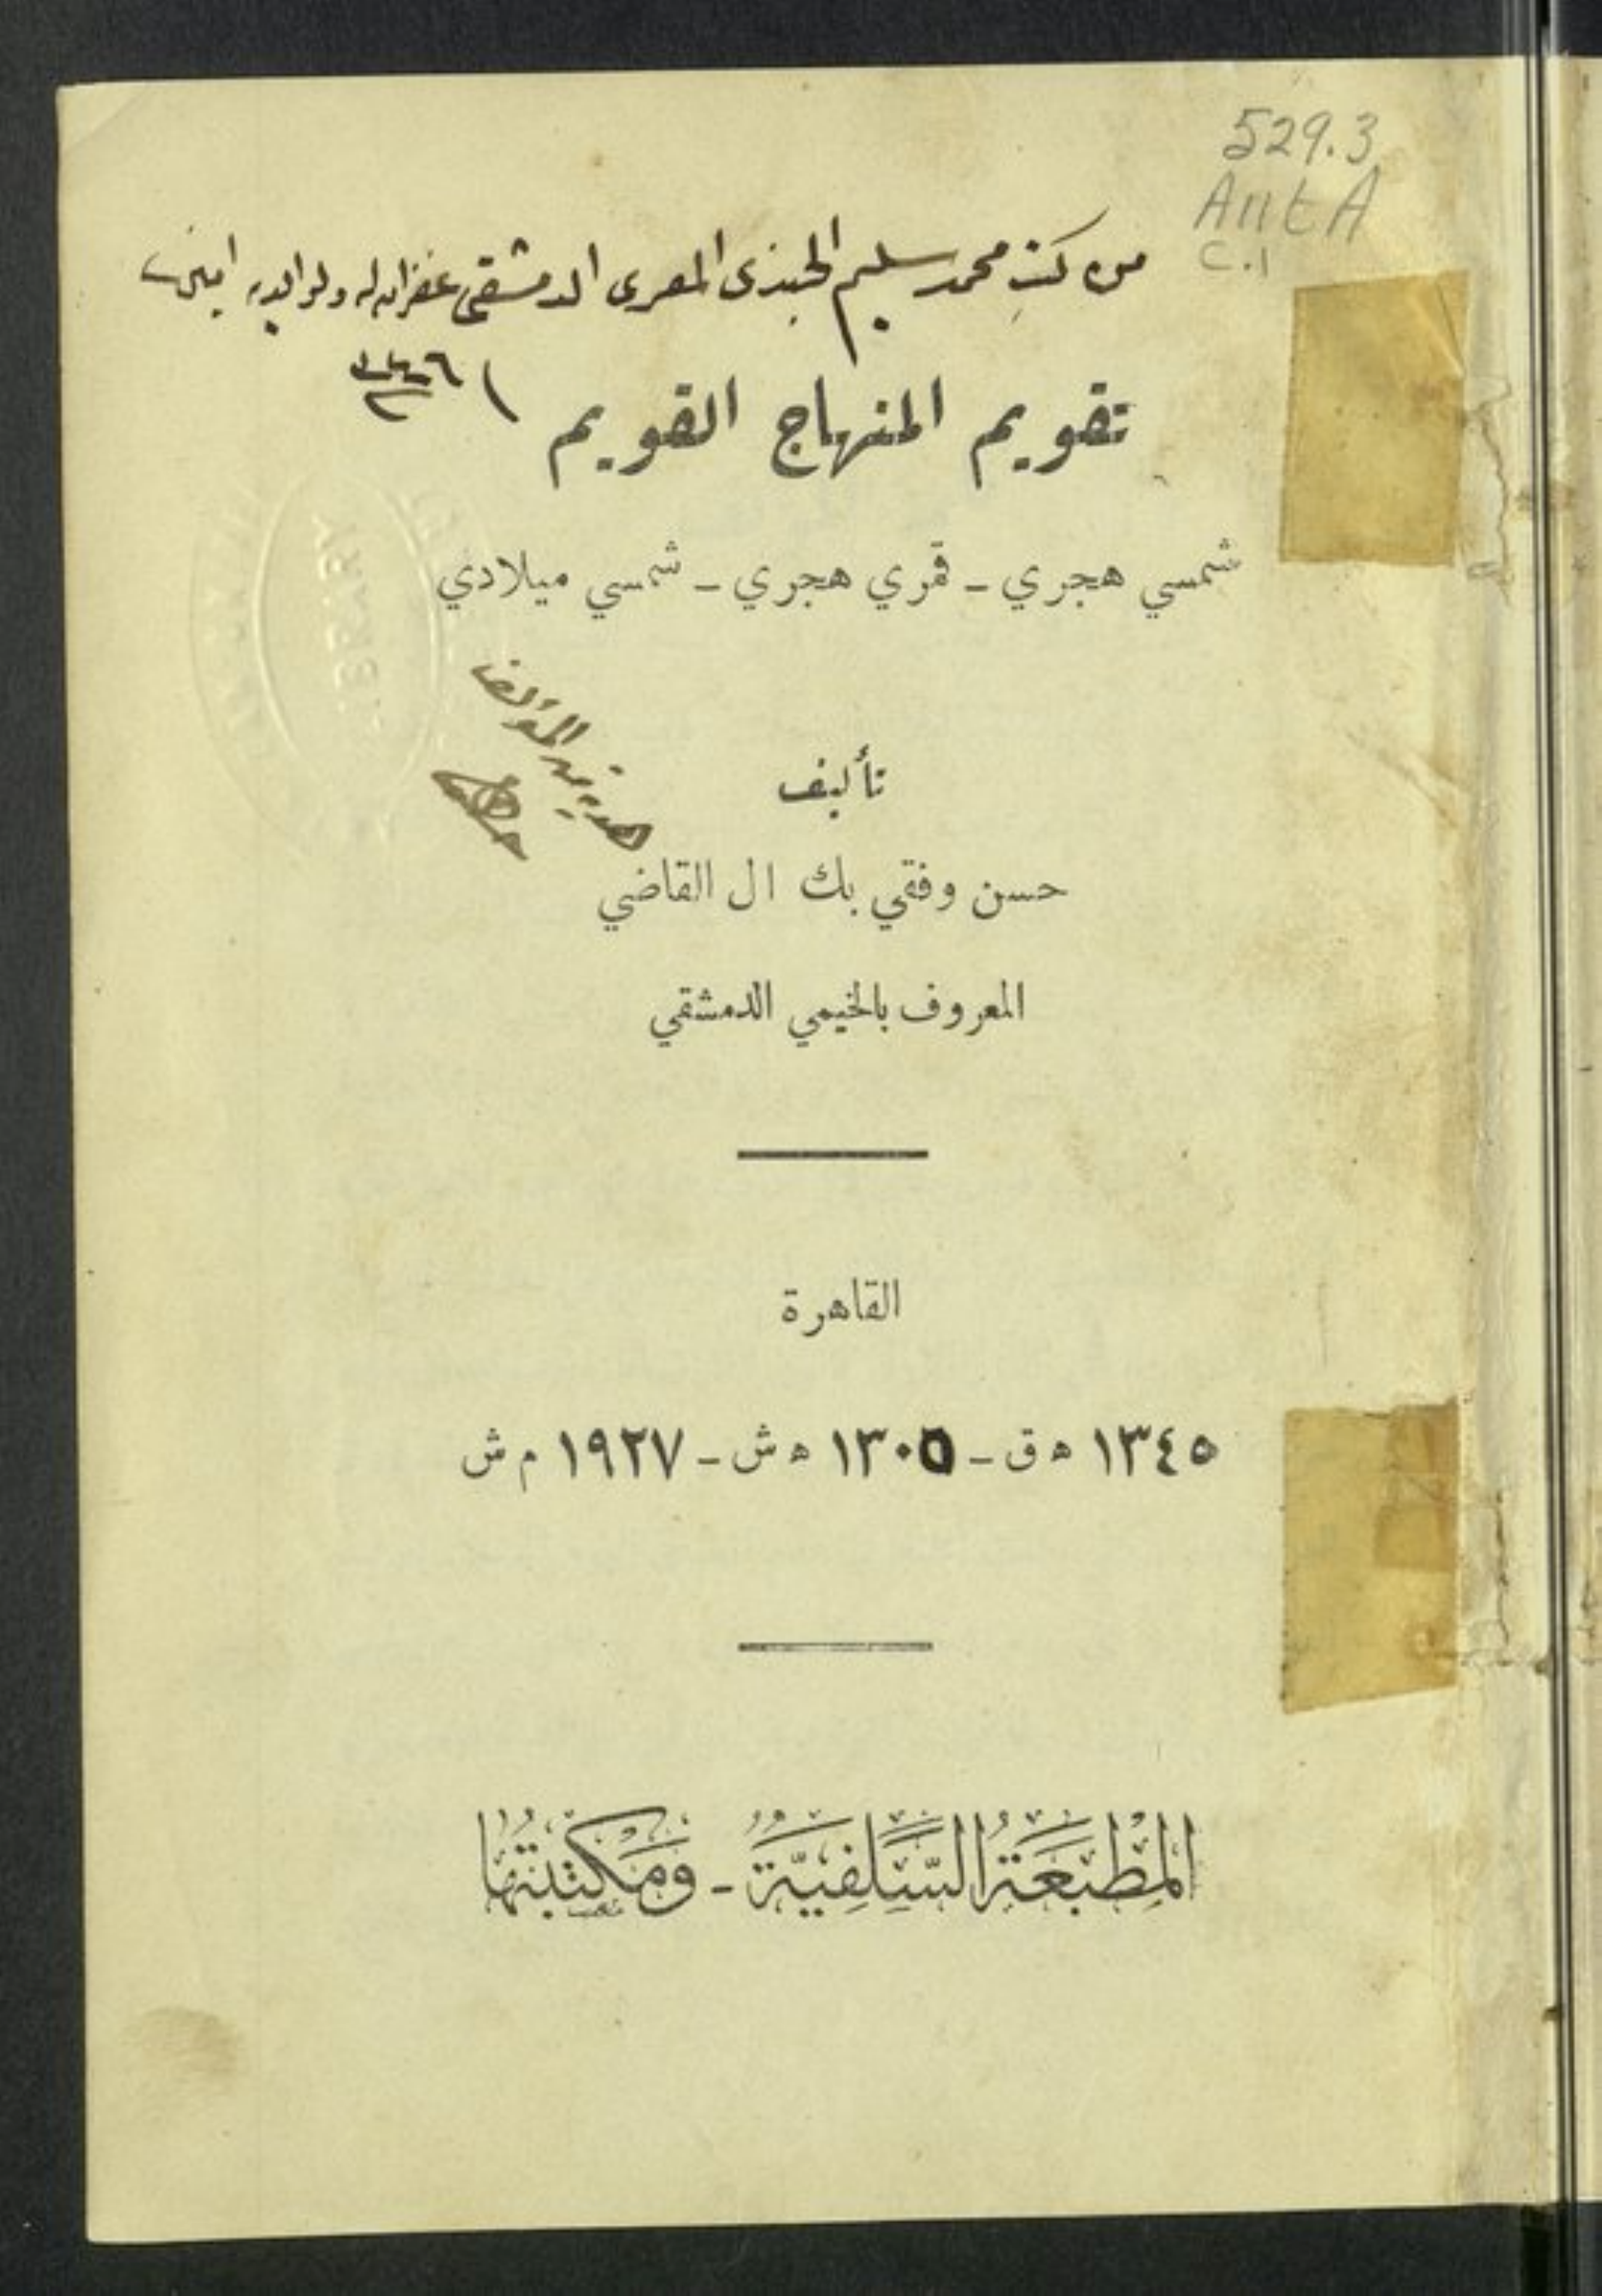 529.3
A11tA
c.1
من كتب محمد سليم الجندي المعري الدمشقي غفر الله له ولوالديه امين
تقويم المنهاج القويم
شمسي هجري - قمري هجري - شمسي ميلادي
هدية من المؤلف
تأليف
حسن وفقي بك ال القاضي
المعروف بالخيمي الدمشقي
القاهرة
١٣٤٥ ه ق - ١٣٠٥ ه ش - ١٩٢٧ م ش
المَطْبَعَةُ السَّلَفِيَّةُ - وَمَكْتَبَتُهَا